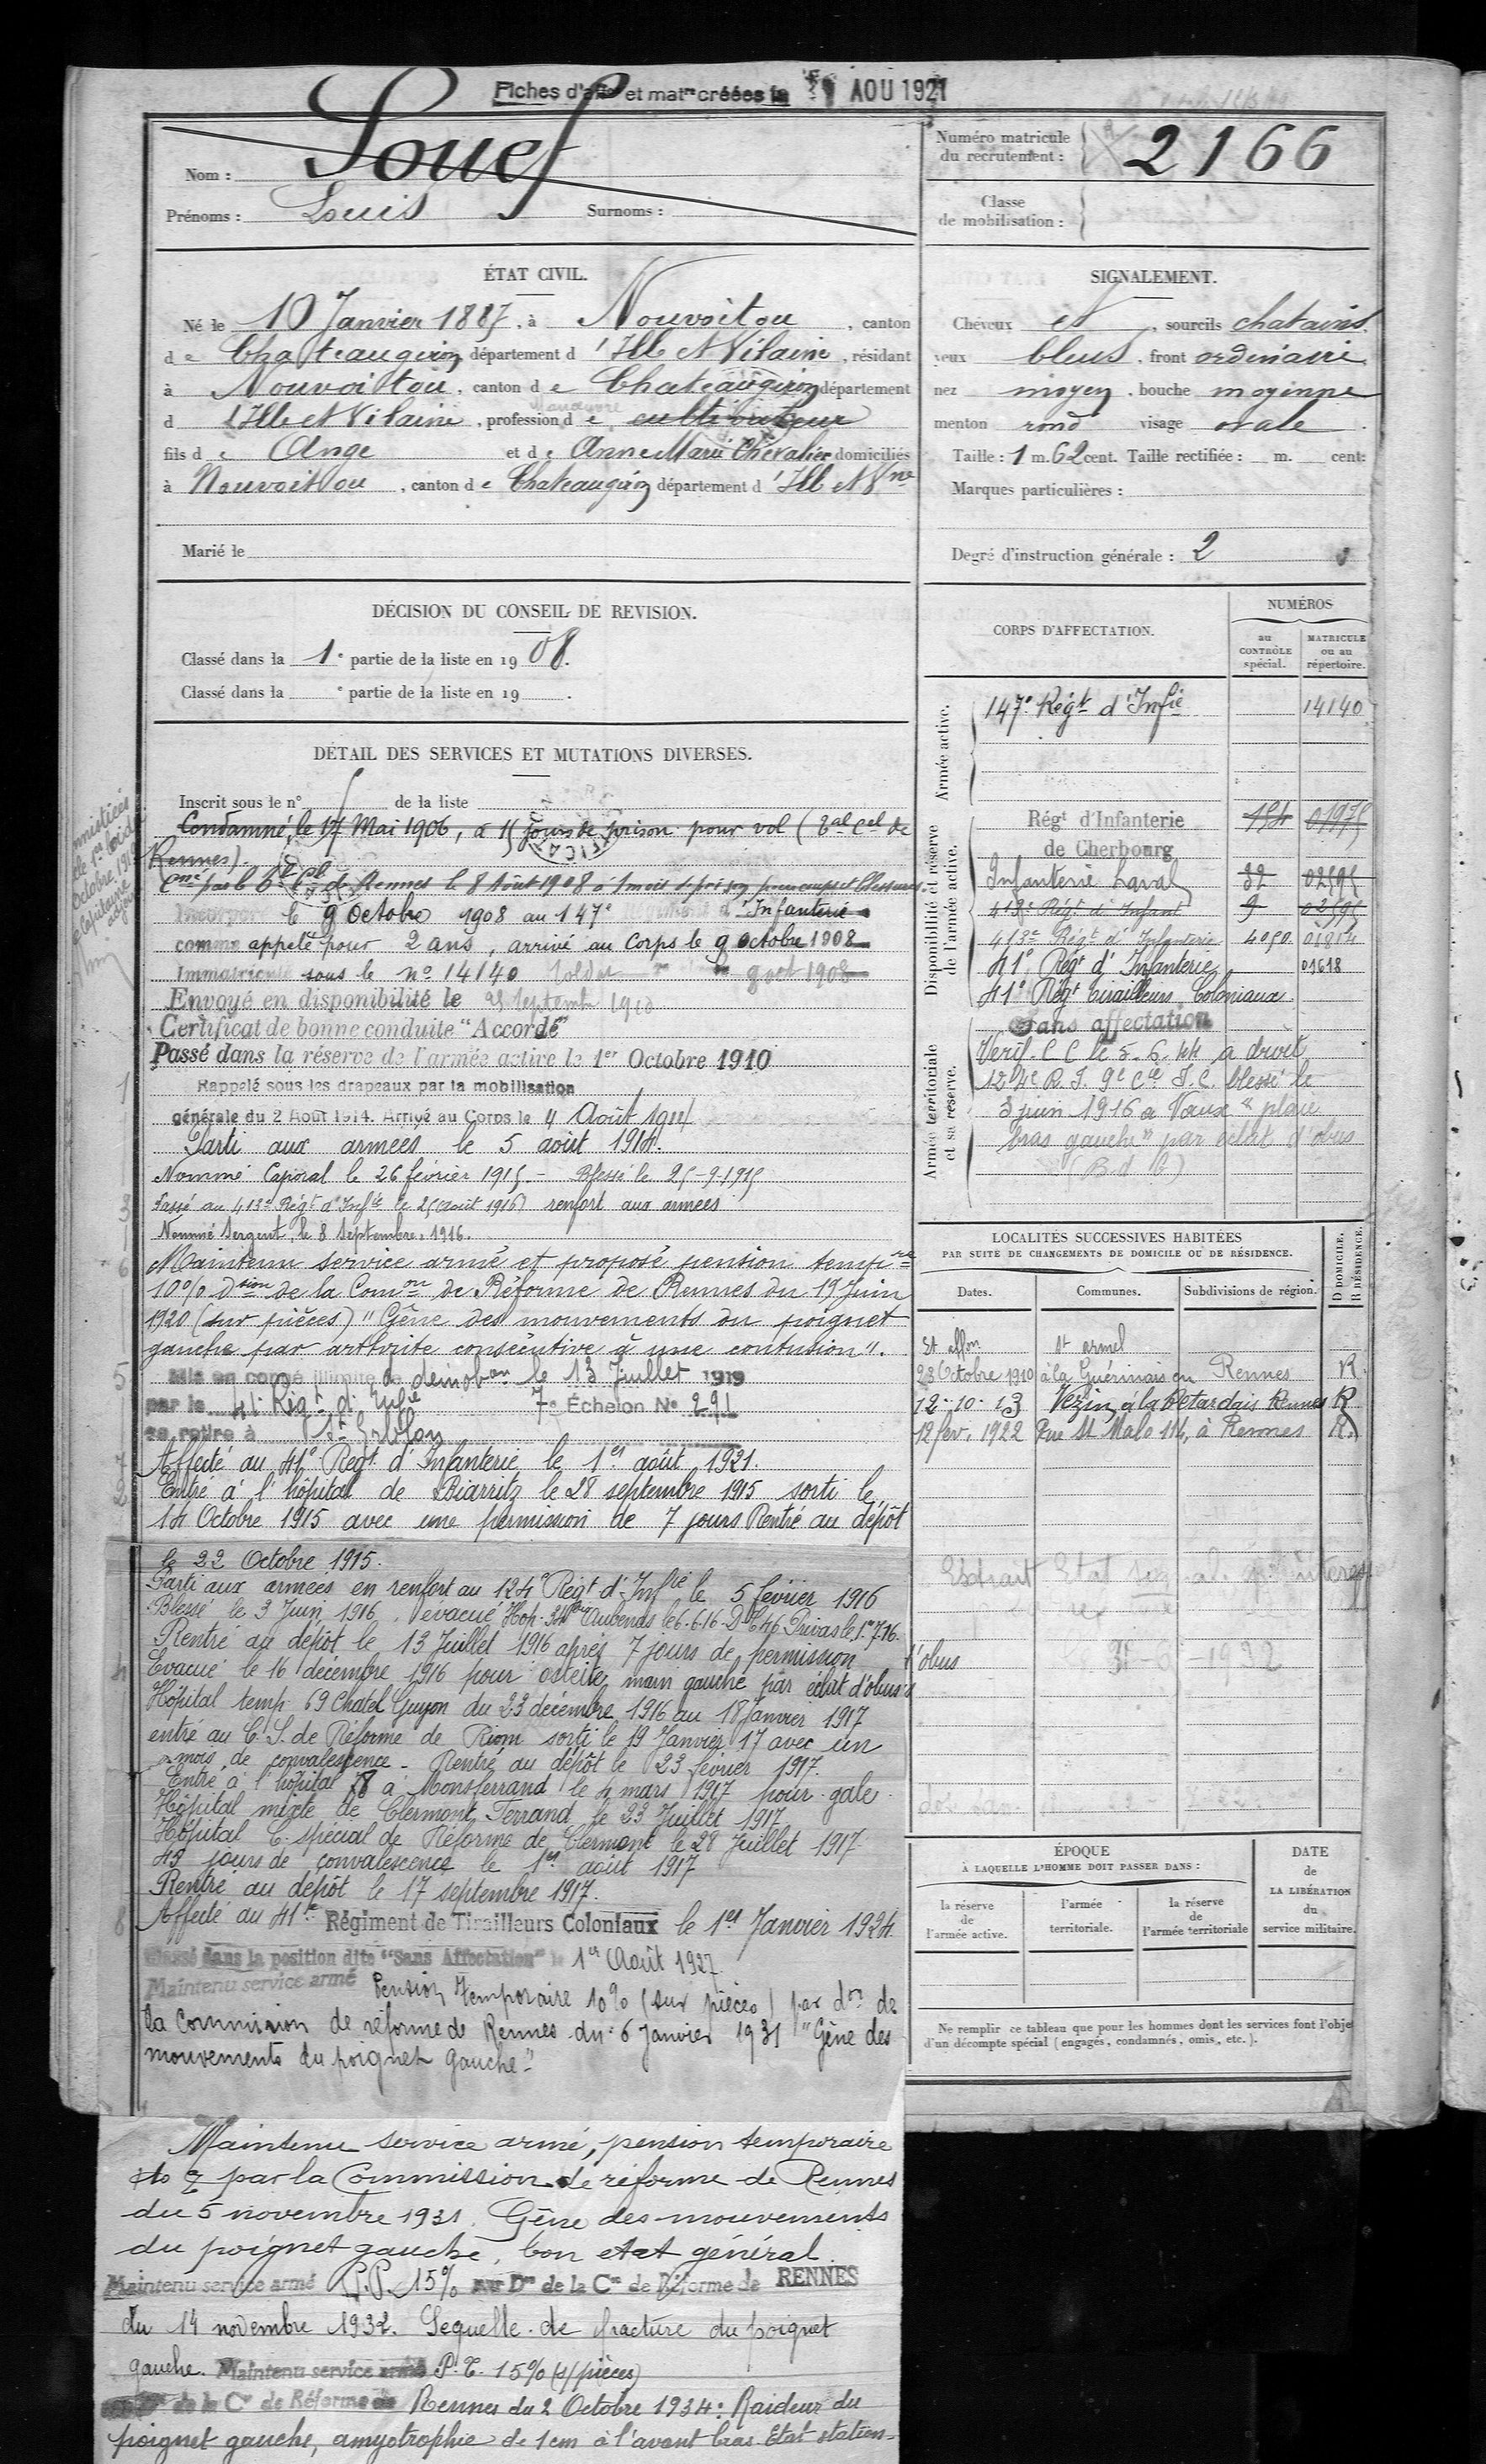 Fiches d'aff et mat<sup>re</sup> créées le 1<sup>er</sup> AOU 1921
Nom : Louef
Prénoms : Louis Surnoms :
Numéro matricule du recrutement : 2166
Classe de mobilisation :
ÉTAT CIVIL.
Né le 10 Janvier 1887, à Nouvoitou, canton
de Chateaugiron département d'Ille et Vilaine, résidant
à Nouvoitou, canton de Chateaugiron département
d'Ille et Vilaine, profession de cultivateur
fils de Ange et de Anne Marie Chevalier domiciliés
à Nouvoitou, canton de Chateaugiron département d'Ille et Vne
Marié le
SIGNALEMENT.
Cheveux et, sourcils chatains
yeux bleus, front ordinaire
nez moyen, bouche moyenne
menton rond visage ovale
Taille : 1 m. 62 cent. Taille rectifiée : m. cent:
Marques particulières :
Degré d'instruction générale : 2
DÉCISION DU CONSEIL DE REVISION.
Classé dans la 1e partie de la liste en 1908.
Classé dans la e partie de la liste en 19 .
DÉTAIL DES SERVICES ET MUTATIONS DIVERSES.
Inscrit sous le n° de la liste
Condamné, le 17 Mai 1906, à 15 jours de prison pour vol (Bal Cel de
Rennes).
Cné par le Bal Cel de Rennes le 8 Août 1908 à 1 mois de prison pour coups et blessures.
Incorporé le 9 Octobre 1908 au 147e d'Infanterie
comme appelé pour 2 ans, arrivé au Corps le 9 octobre 1908
Immatriculé sous le no 14140 Soldat 9 oct 1908
Envoyé en disponibilité le 25 septembre 1910
Certificat de bonne conduite "Accordé"
Passé dans la réserve de l'armée active le 1er Octobre 1910
Rappelé sous les drapeaux par la mobilisation
générale du 2 Août 1914. Arrivé au Corps le 4 Août 1914
Parti aux armées le 5 août 1914.
Nommé Caporal le 26 février 1915. - Blessé le 25-9-1915
Passé au 413e Régt d'Infie le 25 Août 1916 renfort aux armées
Nommé Sergent, le 8 Septembre 1916.
Maintenu service armé et proposé pension tempre
10% Dsion de la Comon de Réforme de Rennes du 19 Juin
1920 (sur pièces) "Gêne des mouvements du poignet
gauche par arthrite consécutive à une contusion".
Mis en congé illimité de démobon le 13 Juillet 1919
par le 41 Régt d'Infie 7e Échelon No 291
se retire à St Erblon
Affecté au 41e Régt d'Infanterie le 1er août 1921.
Entré à l'hôpital de Biarritz le 28 septembre 1915 sorti le
14 Octobre 1915 avec une permission de 7 jours Rentré au dépôt
le 22 Octobre 1915.
Parti aux armées en renfort au 124e Régt d'Infie le 5 février 1916
Blessé le 3 Juin 1916, évacué Hop. Aubenas le 6.6.16. Privas le 1.7.16.
Rentré au dépôt le 13 Juillet 1916 après 7 jours de permission
Evacué le 16 décembre 1916 pour ostéite main gauche par éclat d'obus
Hôpital temp. 69 Chatel Guyon du 23 décembre 1916 au 18 Janvier 1917
entré au C.S. de Réforme de Riom sorti le 19 Janvier 17 avec un
mois de convalescence - Rentré au dépôt le 23 février 1917.
Entré à l'hôpital 78 à Montferrand le 4 mars 1917 pour gale.
Hôpital mixte de Clermont Ferrand le 23 Juillet 1917
Hôpital C. spécial de Réforme de Clermont le 28 Juillet 1917
45 jours de convalescence le 1er août 1917
Rentré au dépôt le 17 septembre 1917.
Affecté au 41e Régiment de Tirailleurs Coloniaux le 1er Janvier 1924.
Classé dans la position dite "Sans Affectation" le 1er Août 1927
Maintenu service armé Pension temporaire 10% (sur pièces) par don de
la Commission de réforme de Rennes du 6 Janvier 1931 "Gêne des
mouvements du poignet gauche."
Maintenu service armé, pension temporaire
10 % par la Commission de réforme de Rennes
du 5 novembre 1931. Gêne des mouvements
du poignet gauche, bon etat général.
Maintenu service armé P.P. 15% par Don de la Con de Réforme de RENNES
du 14 novembre 1932. Sequelle de fracture du poignet
gauche. Maintenu service armé P.T. 15% (s/ pièces)
de la Con de Réforme de Rennes du 2 Octobre 1934: Raideur du
poignet gauche, amyotrophie de 1cm à l'avant bras. Etat station-
CORPS D'AFFECTATION.
NUMÉROS
au CONTRÔLE spécial.
MATRICULE ou au répertoire.
Armée active.
147e Régt d'Infie 14140
Disponibilité et réserve de l'armée active.
Régt d'Infanterie 154 01975
de Cherbourg
Infanterie Laval 32 02595
413e Régt d'Infant 9 02595
413e Régt d'Infanterie 4050 01814
41e Régt d'Infanterie 01618
41e Régt Tirailleurs Coloniaux
Armée territoriale et sa réserve.
Sans affectation
Verif. C C le 5.6.44 a droit
124e R.I. 9e Cie I.C. blessé le
3 juin 1916 a Vaux "plaie
bras gauche" par éclat d'obus
LOCALITÉS SUCCESSIVES HABITÉES
PAR SUITE DE CHANGEMENTS DE DOMICILE OU DE RÉSIDENCE.
Dates. Communes. Subdivisions de région. D DOMICILE. R RÉSIDENCE.
St armel
23 Octobre 1910 à la Guérinais en Rennes R.
12-10-13 Vezin, à la Retardais Rennes R
12 fev. 1922 Rue St Malo 114, à Rennes R.
ÉPOQUE
À LAQUELLE L'HOMME DOIT PASSER DANS :
la réserve de l'armée active.
l'armée territoriale.
la réserve de l'armée territoriale
DATE de LA LIBÉRATION du service militaire.
Ne remplir ce tableau que pour les hommes dont les services font l'obje
d'un décompte spécial (engagés, condamnés, omis, etc.).